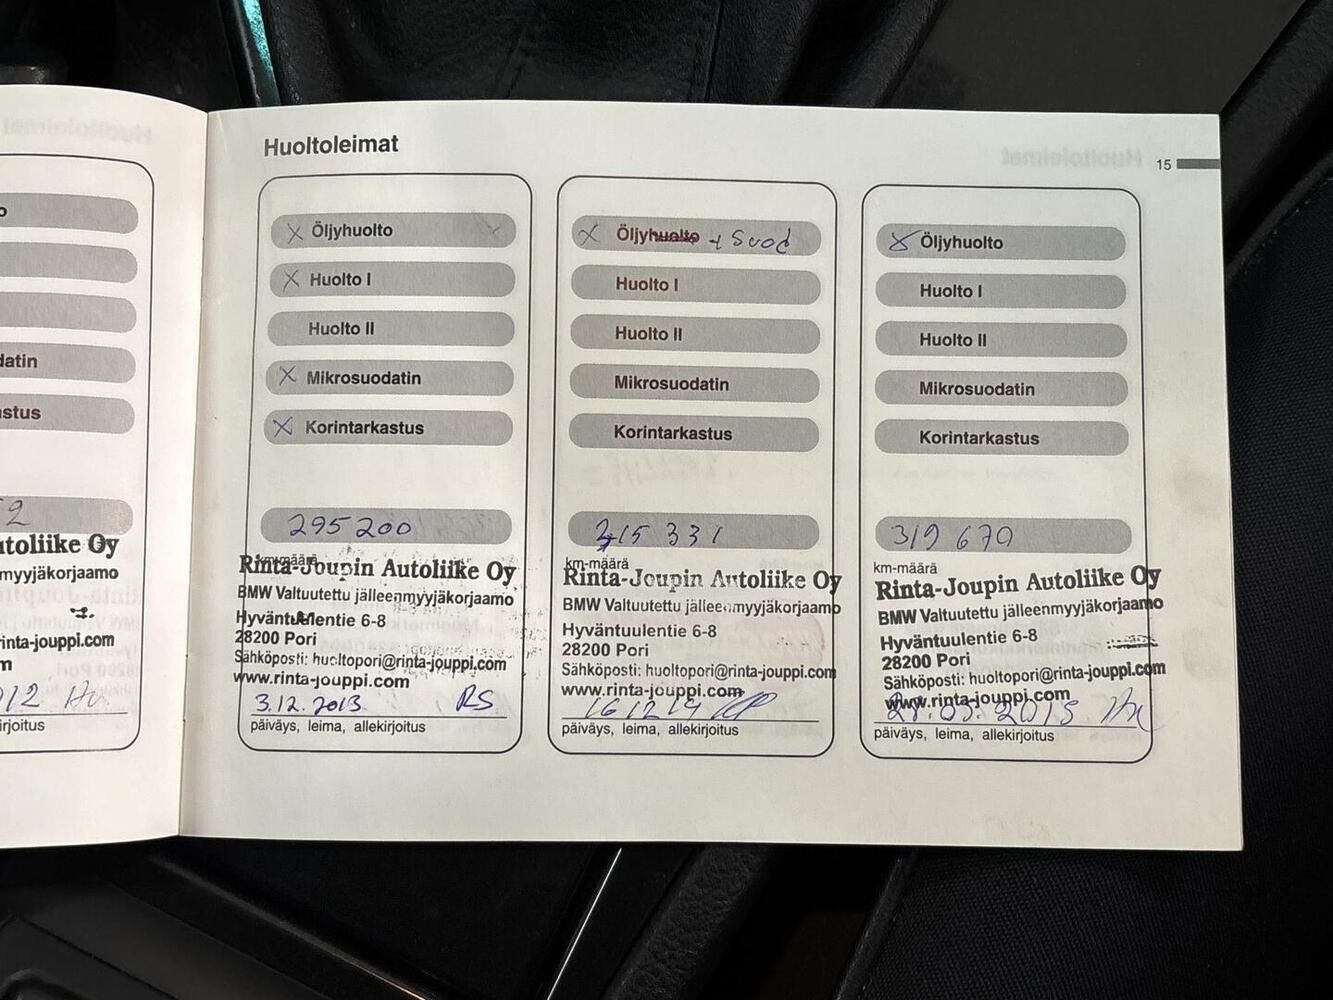 datin
stus
2
utoliike Oy
myyjäkorjaamo
rinta-jouppi.com
m
012
irjoitus
Huoltoleimat
15
X Öljyhuolto
X Huolto I
Huolto II
X Mikrosuodatin
X Korintarkastus
295 200
km-määrä
Rinta-Joupin Autoliike Oy
BMW Valtuutettu jälleenmyyjäkorjaamo
Hyväntuulentie 6-8
28200 Pori
Sähköposti: huoltopori@rinta-jouppi.com
www.rinta-jouppi.com
3.12.2013 RS
päiväys, leima, allekirjoitus
X Öljyhuolto + Suod
Huolto I
Huolto II
Mikrosuodatin
Korintarkastus
315 331
km-määrä
Rinta-Joupin Autoliike Oy
BMW Valtuutettu jälleenmyyjäkorjaamo
Hyväntuulentie 6-8
28200 Pori
Sähköposti: huoltopori@rinta-jouppi.com
www.rinta-jouppi.com
16 12 14
päiväys, leima, allekirjoitus
X Öljyhuolto
Huolto I
Huolto II
Mikrosuodatin
Korintarkastus
319 670
km-määrä
Rinta-Joupin Autoliike Oy
BMW Valtuutettu jälleenmyyjäkorjaamo
Hyväntuulentie 6-8
28200 Pori
Sähköposti: huoltopori@rinta-jouppi.com
www.rinta-jouppi.com
päiväys, leima, allekirjoitus